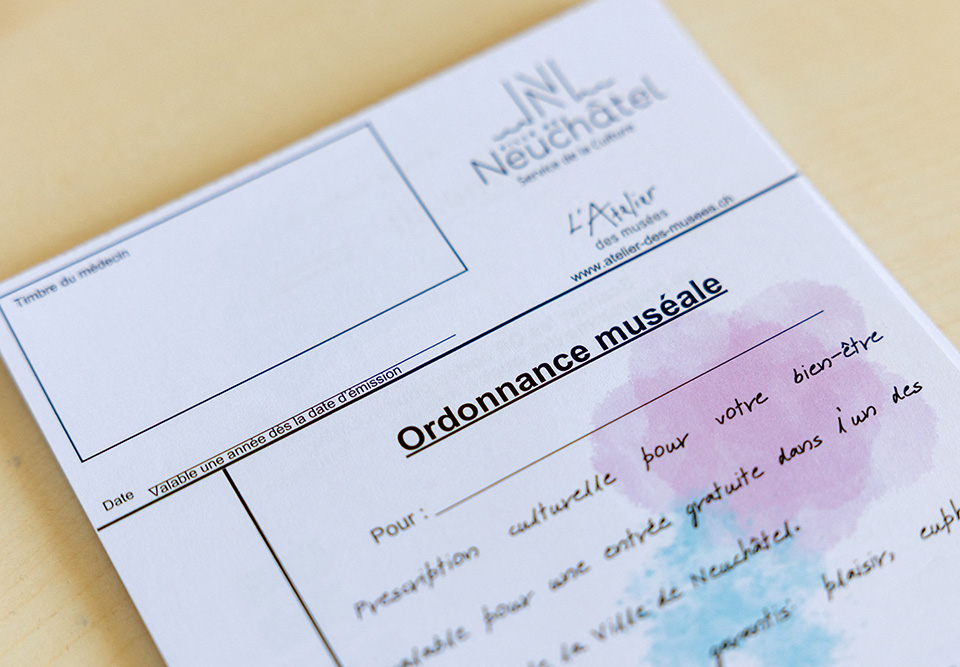 VILLE DE
Neuchâtel
Service de la Culture
L'Atelier
des musées
www.atelier-des-musees.ch
Timbre du médecin
Date Valable une année dès la date d'émission
Ordonnance muséale
Pour :
Prescription culturelle pour votre bien-être
valable pour une entrée gratuite dans l'un des
la Ville de Neuchâtel.
garantis plaisir,